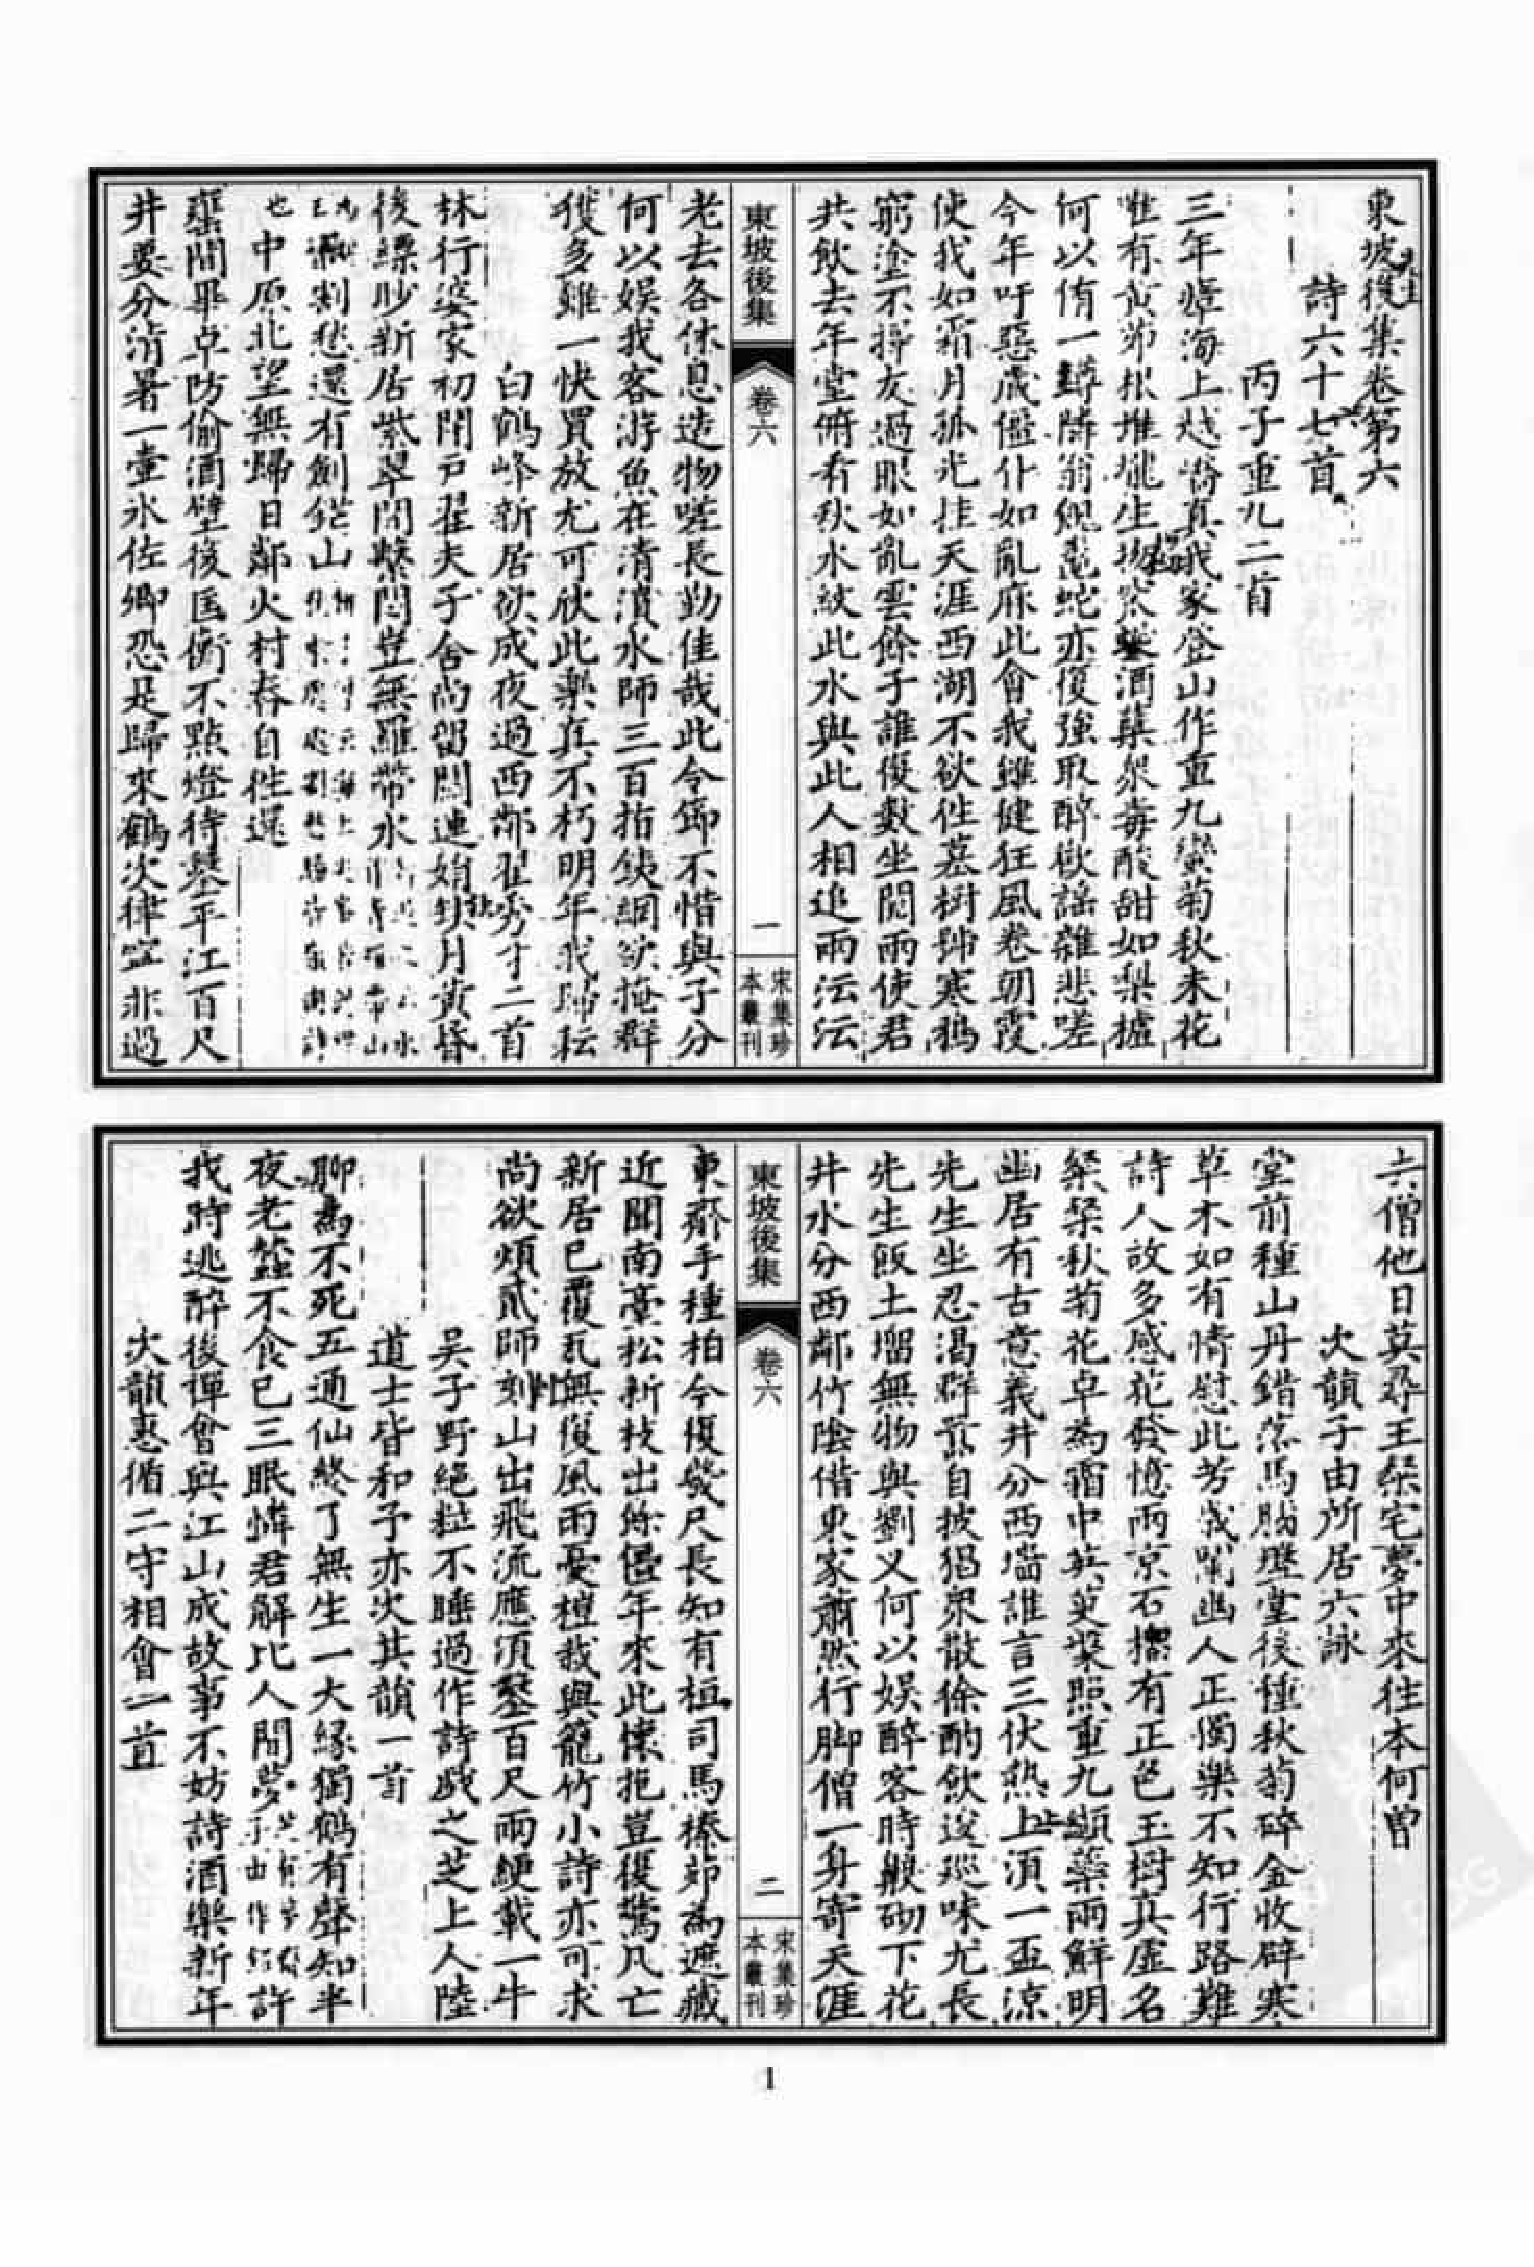 東坡後集卷第六
詩六十七首
丙子重九二首
三年瘴海上越嶠真我家登山作重九蠻菊秋未花
惟有黃茆根堆壠生坳窊蜑酒蘖衆毒酸甜如梨樝
何以侑一罇鄰翁餽䵷蛇亦復強取醉歡謠雜悲嗟
今年吁惡歲僵仆如亂麻此會我雖健狂風卷朝霞
使我如霜月孤光挂天涯西湖不欲往墓樹號寒鴉
窮塗不擇友過眼如亂雲餘子誰復數坐閱兩使君
共飲去年堂俯看秋水紋此水與此人相追兩沄沄
東坡後集
卷六
一
宋集珍
本叢刊
老去各休息造物嗟長勤佳哉此令節不惜與子分
何以娛我客游魚在清濆水師三百指鐵網欲掩群
獲多雖一快買放尤可欣此樂真不朽明年我歸耘
白鶴峰新居欲成夜過西鄰翟秀才二首
林行婆家初閉戶翟夫子舍尚留關連娟缺月黃昏
後縹眇新居紫翠間繫悶豈無羅帶水
割愁還有劒鋩山
也中原北望無歸日鄰火村舂自往還
甕間畢卓防偷酒壁後匡衡不點燈待鑿平江百尺
井要分清暑一壺氷佐卿恐是歸來鶴次律寧非過
去僧他日莫尋王粲宅夢中來往本何曾
次韻子由所居六詠
堂前種山丹錯落馬腦盤堂後種秋菊碎金收辟寒
草木如有情慰此芳歲闌幽人正獨樂不知行路難
詩人故多感花發憶兩京石榴有正色玉樹真虛名
粲粲秋菊花卓為霜中英萸槃照重九纈蘂兩鮮明
幽居有古意義井分西墻誰言三伏熱止須一盃涼
先生坐忍渴群嚻自披猖衆散徐酌飲逡巡味尤長
先生飯土塯無物與劉叉何以娛醉客時嗅砌下花
井水分西鄰竹陰借東家蕭然行脚僧一身寄天涯
東坡後集
卷六
二
宋集珍
本叢刊
東齋手種柏今復幾尺長知有桓司馬榛茆為遮藏
近聞南臺松新枝出餘僵年來此懷抱豈復驚凡亡
新居已覆瓦無復風雨憂榿栽與籠竹小詩亦可求
尚欲煩貳師刺山出飛流應須鑿百尺兩綆載一牛
吳子野絕粒不睡過作詩戲之芝上人陸
道士皆和予亦次其韻一首
聊為不死五通仙終了無生一大緣獨鶴有聲知半
夜老蠶不食已三眠憐君解比人間夢
許
我時逃醉後禪會與江山成故事不妨詩酒樂新年
次韻惠循二守相會一首
1